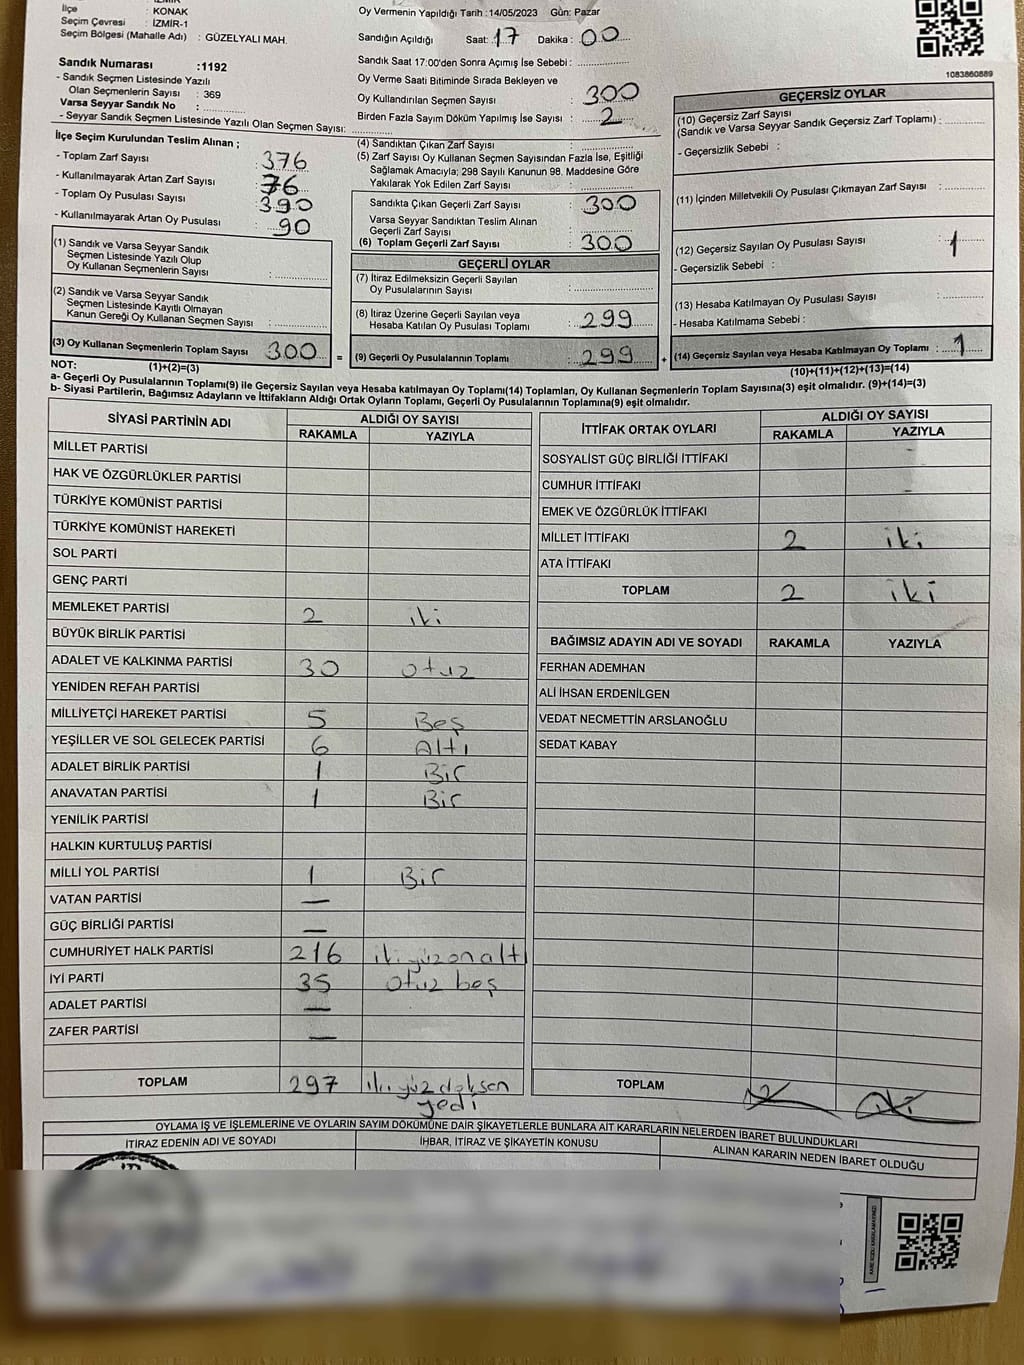 İZMİR
İlçe : KONAK
Seçim Çevresi : İZMİR-1
Seçim Bölgesi (Mahalle Adı) : GÜZELYALI MAH.
Sandık Numarası :1192
- Sandık Seçmen Listesinde Yazılı
Olan Seçmenlerin Sayısı : 369
Varsa Seyyar Sandık No :
- Seyyar Sandık Seçmen Listesinde Yazılı Olan Seçmen Sayısı:
İlçe Seçim Kurulundan Teslim Alınan ;
- Toplam Zarf Sayısı : 376
- Kullanılmayarak Artan Zarf Sayısı : 76
- Toplam Oy Pusulası Sayısı : 390
- Kullanılmayarak Artan Oy Pusulası : 90
(1) Sandık ve Varsa Seyyar Sandık
Seçmen Listesinde Yazılı Olup
Oy Kullanan Seçmenlerin Sayısı :
(2) Sandık ve Varsa Seyyar Sandık
Seçmen Listesinde Kayıtlı Olmayan
Kanun Gereği Oy Kullanan Seçmen Sayısı :
(3) Oy Kullanan Seçmenlerin Toplam Sayısı 300
(1)+(2)=(3)
Oy Vermenin Yapıldığı Tarih :14/05/2023 Gün: Pazar
Sandığın Açıldığı Saat: 17 Dakika : 00
Sandık Saat 17:00'den Sonra Açımış İse Sebebi :
Oy Verme Saati Bitiminde Sırada Bekleyen ve
Oy Kullandırılan Seçmen Sayısı : 300
Birden Fazla Sayım Döküm Yapılmış İse Sayısı : 2
(4) Sandıktan Çıkan Zarf Sayısı :
(5) Zarf Sayısı Oy Kullanan Seçmen Sayısından Fazla İse, Eşitliği
Sağlamak Amacıyla; 298 Sayılı Kanunun 98. Maddesine Göre
Yakılarak Yok Edilen Zarf Sayısı :
Sandıkta Çıkan Geçerli Zarf Sayısı : 300
Varsa Seyyar Sandıktan Teslim Alınan
Geçerli Zarf Sayısı :
(6) Toplam Geçerli Zarf Sayısı : 300
GEÇERLİ OYLAR
(7) İtiraz Edilmeksizin Geçerli Sayılan
Oy Pusulalarının Sayısı :
(8) İtiraz Üzerine Geçerli Sayılan veya
Hesaba Katılan Oy Pusulası Toplamı : 299
= (9) Geçerli Oy Pusulalarının Toplamı : 299 +
1083860889
GEÇERSİZ OYLAR
(10) Geçersiz Zarf Sayısı
(Sandık ve Varsa Seyyar Sandık Geçersiz Zarf Toplamı) :
- Geçersizlik Sebebi :
(11) İçinden Milletvekili Oy Pusulası Çıkmayan Zarf Sayısı :
(12) Geçersiz Sayılan Oy Pusulası Sayısı : 1
- Geçersizlik Sebebi :
(13) Hesaba Katılmayan Oy Pusulası Sayısı :
- Hesaba Katılmama Sebebi :
(14) Geçersiz Sayılan veya Hesaba Katılmayan Oy Toplamı : 1
(10)+(11)+(12)+(13)=(14)
NOT:
a- Geçerli Oy Pusulalarının Toplamı(9) ile Geçersiz Sayılan veya Hesaba katılmayan Oy Toplamı(14) Toplamları, Oy Kullanan Seçmenlerin Toplam Sayısına(3) eşit olmalıdır. (9)+(14)=(3)
b- Siyasi Partilerin, Bağımsız Adayların ve İttifakların Aldığı Ortak Oyların Toplamı, Geçerli Oy Pusulalarının Toplamına(9) eşit olmalıdır.
SİYASİ PARTİNİN ADI ALDIĞI OY SAYISI
RAKAMLA YAZIYLA
MİLLET PARTİSİ
HAK VE ÖZGÜRLÜKLER PARTİSİ
TÜRKİYE KOMÜNİST PARTİSİ
TÜRKİYE KOMÜNİST HAREKETİ
SOL PARTİ
GENÇ PARTİ
MEMLEKET PARTİSİ 2 iki
BÜYÜK BİRLİK PARTİSİ
ADALET VE KALKINMA PARTİSİ 30 otuz
YENİDEN REFAH PARTİSİ
MİLLİYETÇİ HAREKET PARTİSİ 5 Beş
YEŞİLLER VE SOL GELECEK PARTİSİ 6 Altı
ADALET BİRLİK PARTİSİ 1 Bir
ANAVATAN PARTİSİ 1 Bir
YENİLİK PARTİSİ
HALKIN KURTULUŞ PARTİSİ
MİLLİ YOL PARTİSİ 1 Bir
VATAN PARTİSİ —
GÜÇ BİRLİĞİ PARTİSİ —
CUMHURİYET HALK PARTİSİ 216 ikiyüzonaltı
İYİ PARTİ 35 otuz beş
ADALET PARTİSİ —
ZAFER PARTİSİ —
TOPLAM 297 ikiyüz doksen
yedi
İTTİFAK ORTAK OYLARI ALDIĞI OY SAYISI
RAKAMLA YAZIYLA
SOSYALİST GÜÇ BİRLİĞİ İTTİFAKI
CUMHUR İTTİFAKI
EMEK VE ÖZGÜRLÜK İTTİFAKI
MİLLET İTTİFAKI 2 iki
ATA İTTİFAKI
TOPLAM 2 iki
BAĞIMSIZ ADAYIN ADI VE SOYADI RAKAMLA YAZIYLA
FERHAN ADEMHAN
ALİ İHSAN ERDENİLGEN
VEDAT NECMETTİN ARSLANOĞLU
SEDAT KABAY
TOPLAM
OYLAMA İŞ VE İŞLEMLERİNE VE OYLARIN SAYIM DÖKÜMÜNE DAİR ŞİKAYETLERLE BUNLARA AİT KARARLARIN NELERDEN İBARET BULUNDUKLARI
İTİRAZ EDENİN ADI VE SOYADI İHBAR, İTİRAZ VE ŞİKAYETİN KONUSU ALINAN KARARIN NEDEN İBARET OLDUĞU